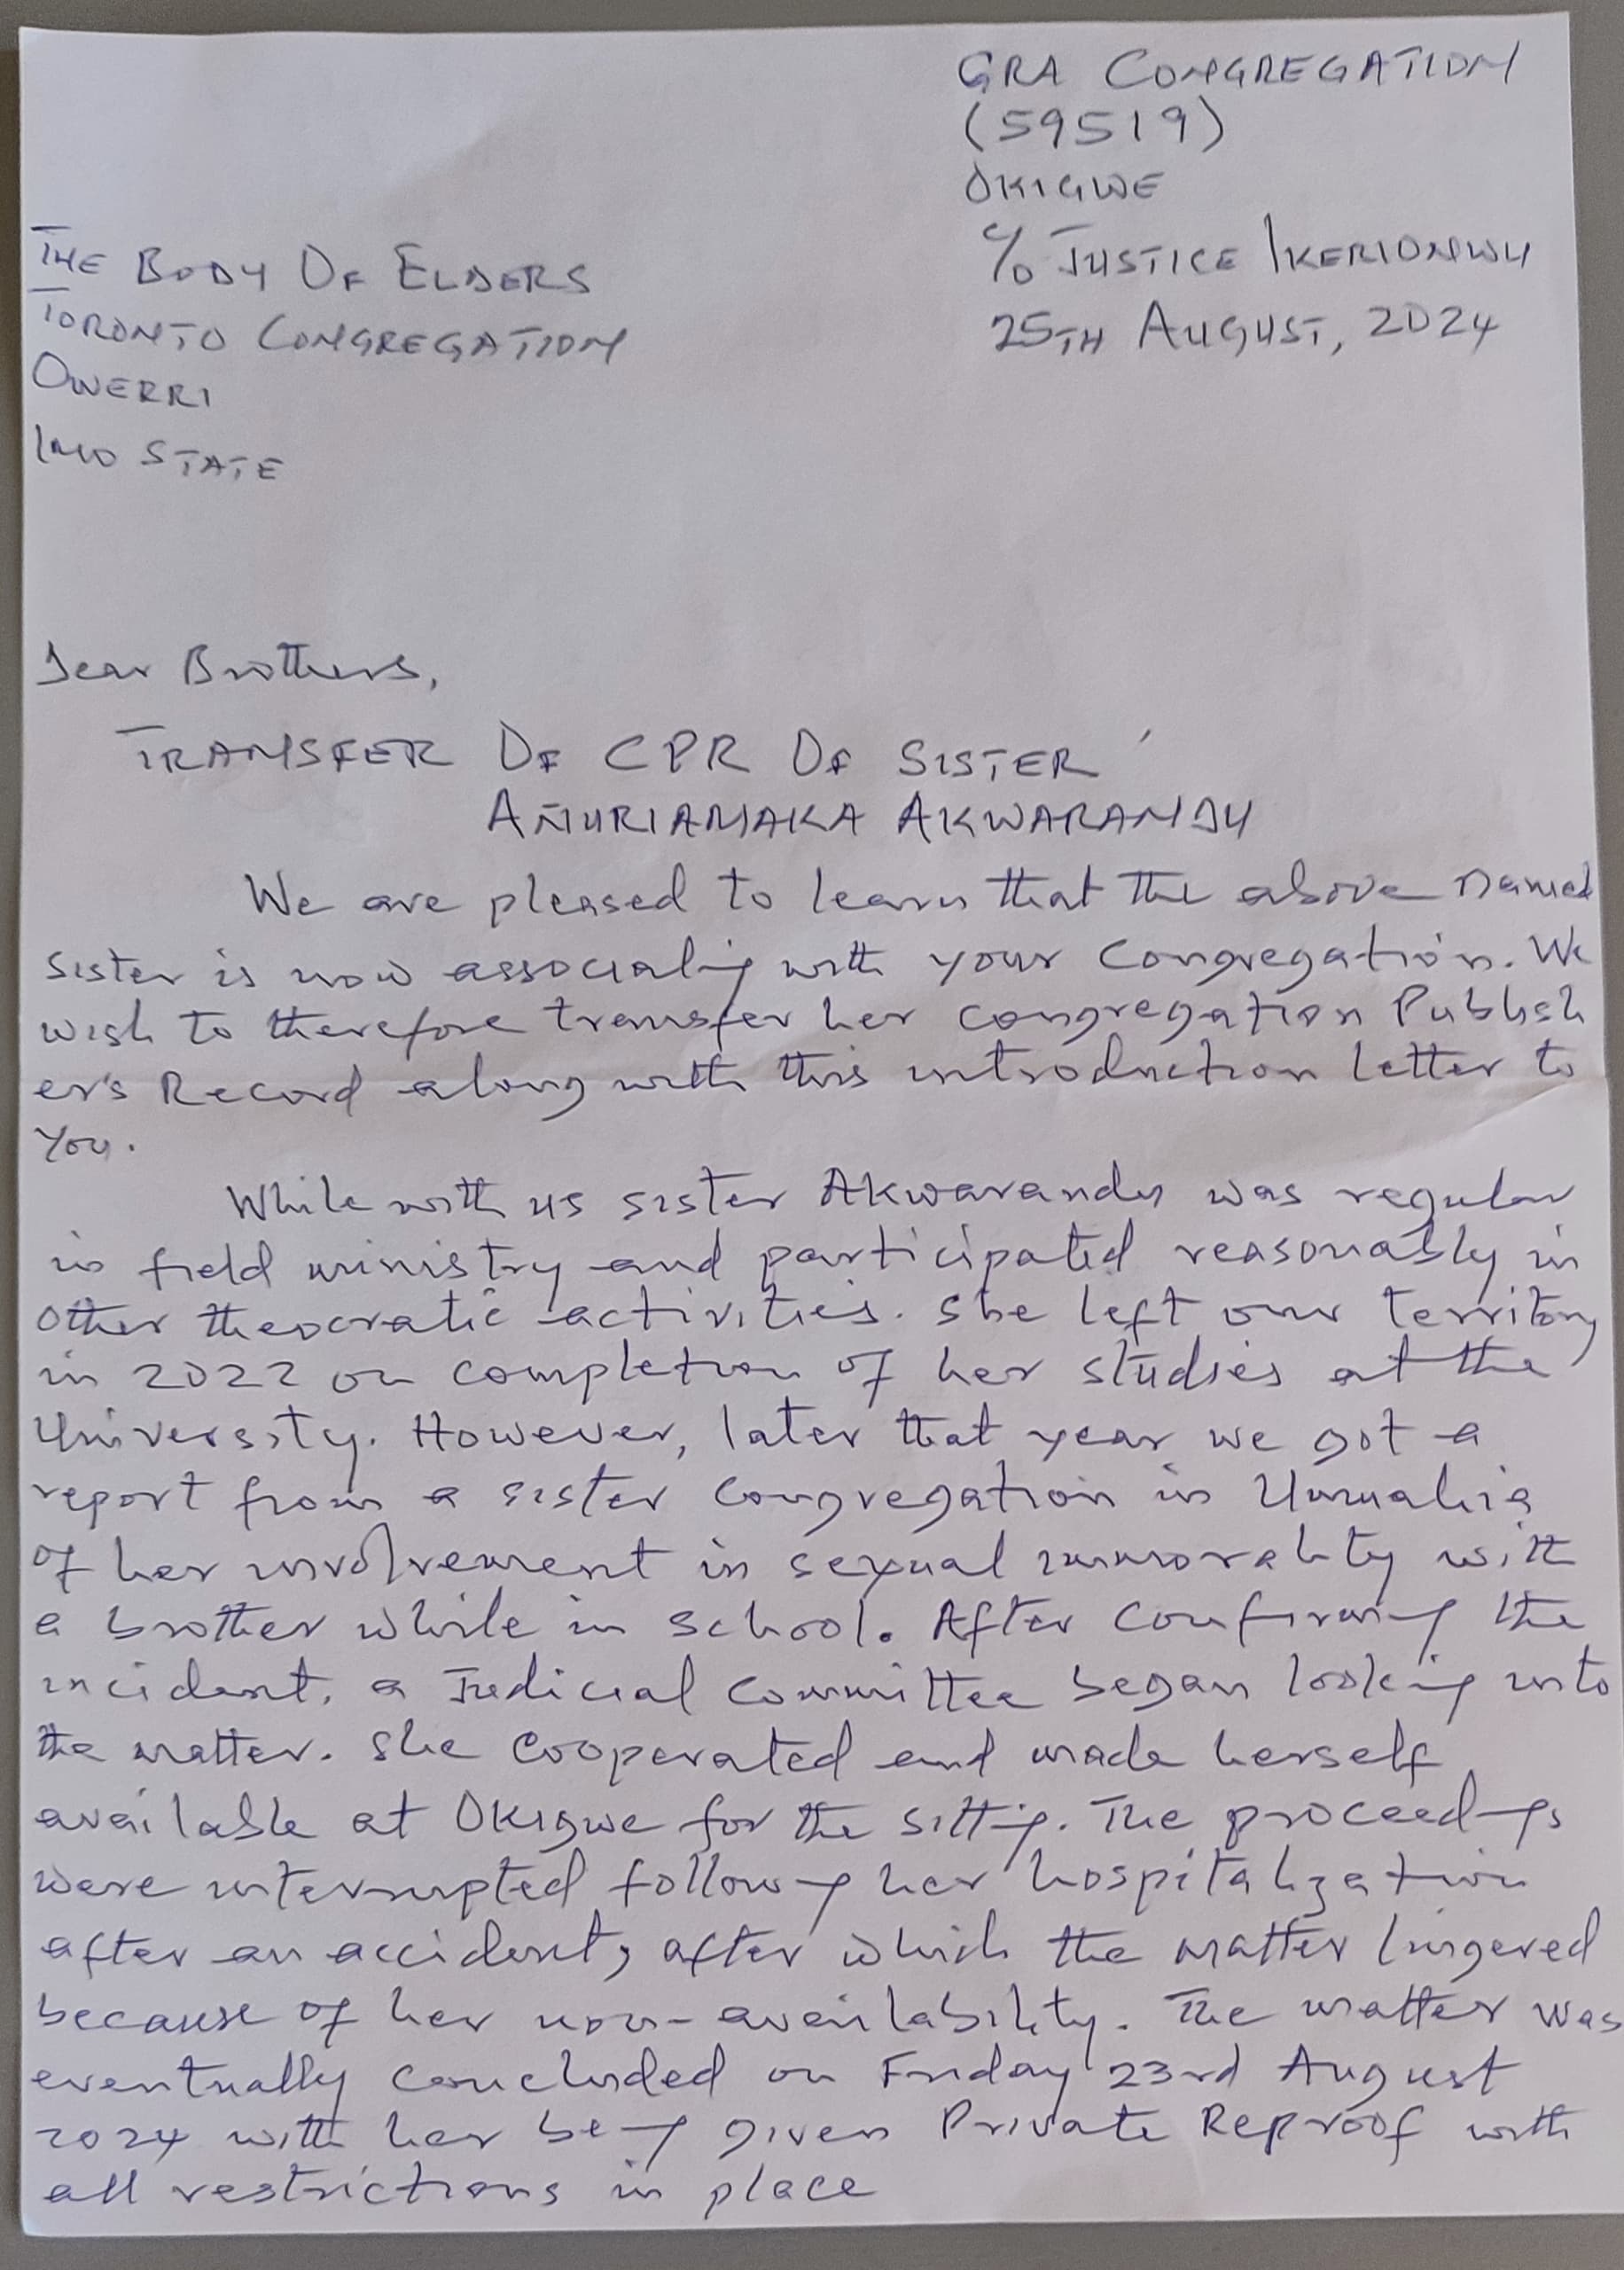 GRA CONGREGATION
(59519)
OKIGWE
C/O JUSTICE IKERIONWU
25TH AUGUST, 2024
THE BODY OF ELDERS
TORONTO CONGREGATION
OWERRI
IMO STATE
Dear Brothers,
TRANSFER OF CPR OF SISTER
ANURIAMAKA AKWARANDU
We are pleased to learn that the above named
sister is now associating with your Congregation. We
wish to therefore transfer her congregation Publish
er's Record along with this introduction letter to
you.
While with us sister Akwarandu was regular
in field ministry and participated reasonably in
other theocratic activities. She left our territory
in 2022 on completion of her studies at the
University. However, later that year we got a
report from a sister congregation in Umuahia
of her involvement in sexual immorality with
a brother while in school. After confirming the
incident, a Judicial Committee began looking into
the matter. She cooperated and made herself
available at Okigwe for the sitting. The proceedings
were interrupted following her hospitalization
after an accident, after which the matter lingered
because of her non-availability. The matter was
eventually concluded on Friday 23rd August
2024 with her being given Private Reproof with
all restrictions in place